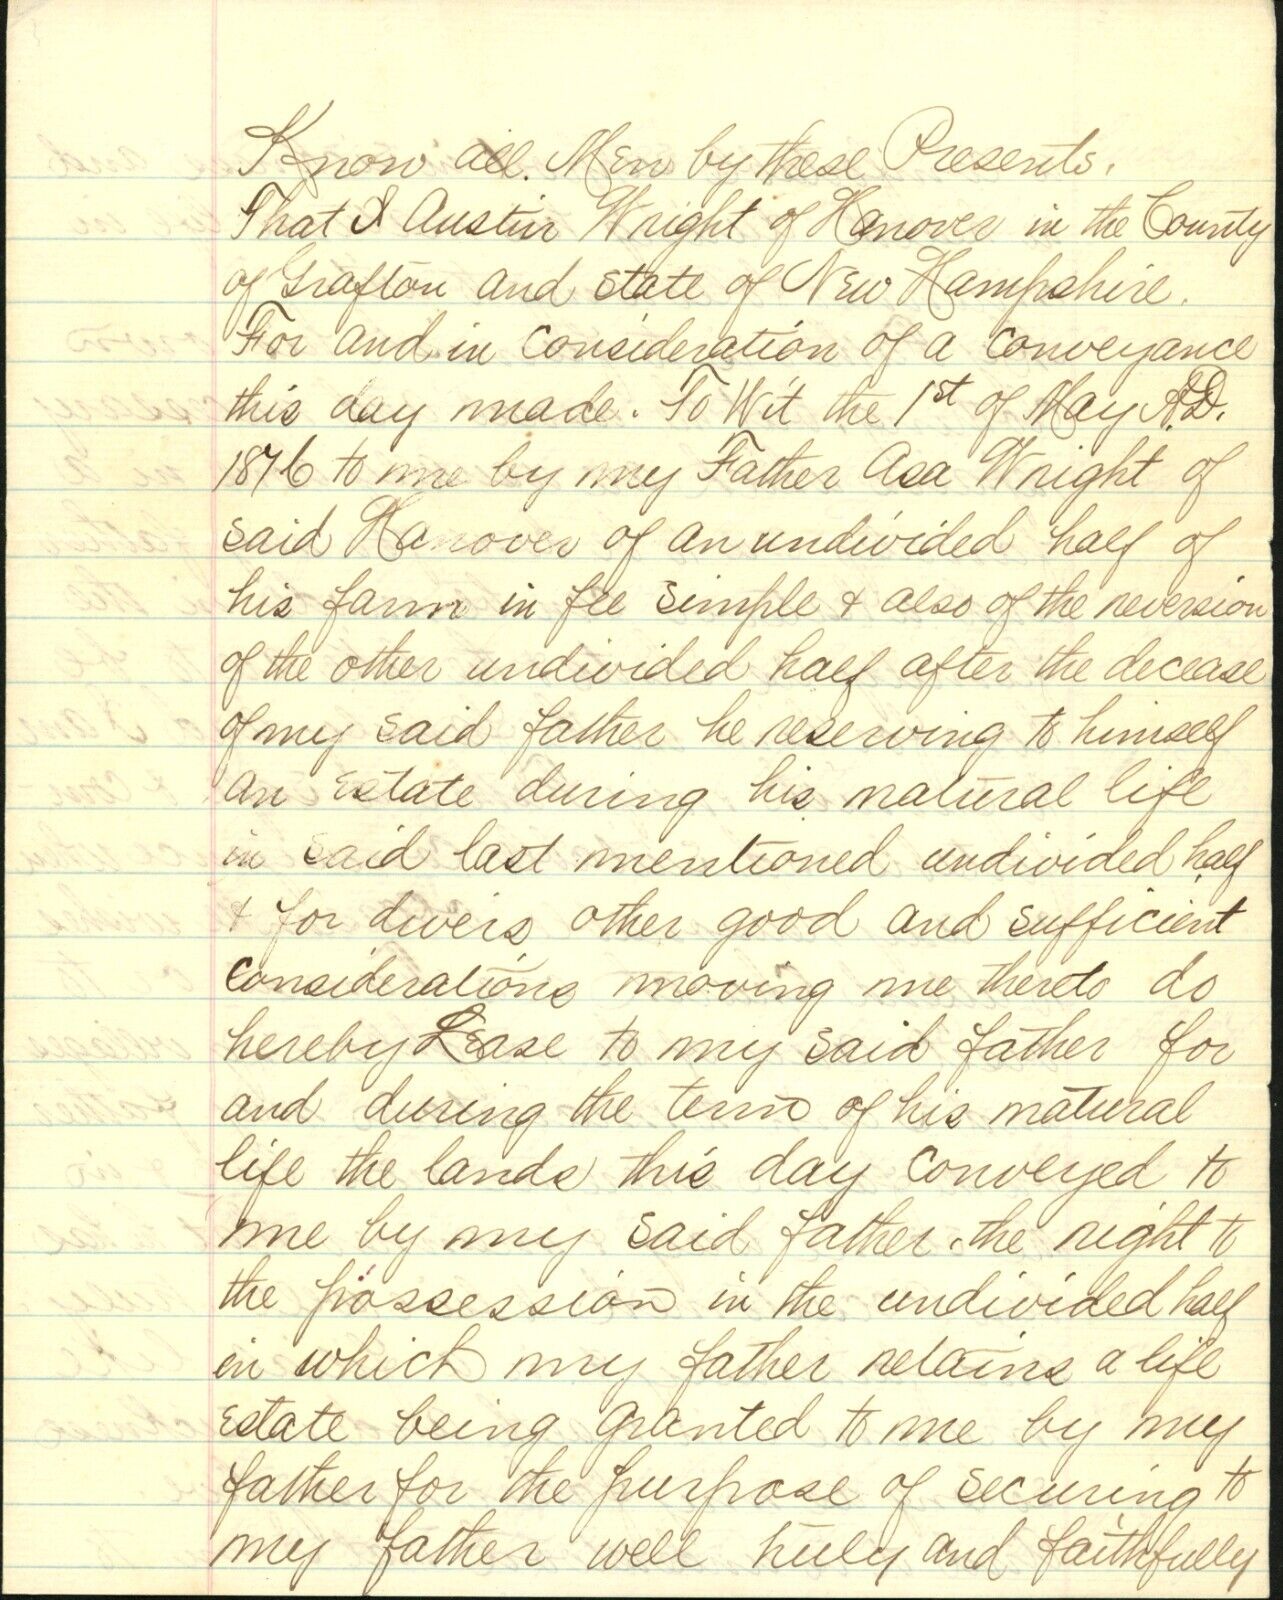 Know all. Men by these Presents.
That I Austin Wright of Hanover in the County
of Grafton and state of New Hampshire.
For and in consideration of a conveyance
this day made. To Wit the 1st of May A.D.
1876 to me by my Father Asa Wright of
said Hanover of an undivided half of
his farm in fee simple & also of the reversion
of the other undivided half after the decease
of my said father he reserving to himself
an Estate during his natural life
in said last mentioned undivided half
& for divers other good and sufficient
considerations moving me thereto do
hereby Lease to my said father for
and during the term of his natural
life the lands this day conveyed to
me by my said father. the right to
the possession in the undivided half
in which my father retains a life
Estate being granted to me by my
father for the purpose of securing to
my father well truly and faithfully